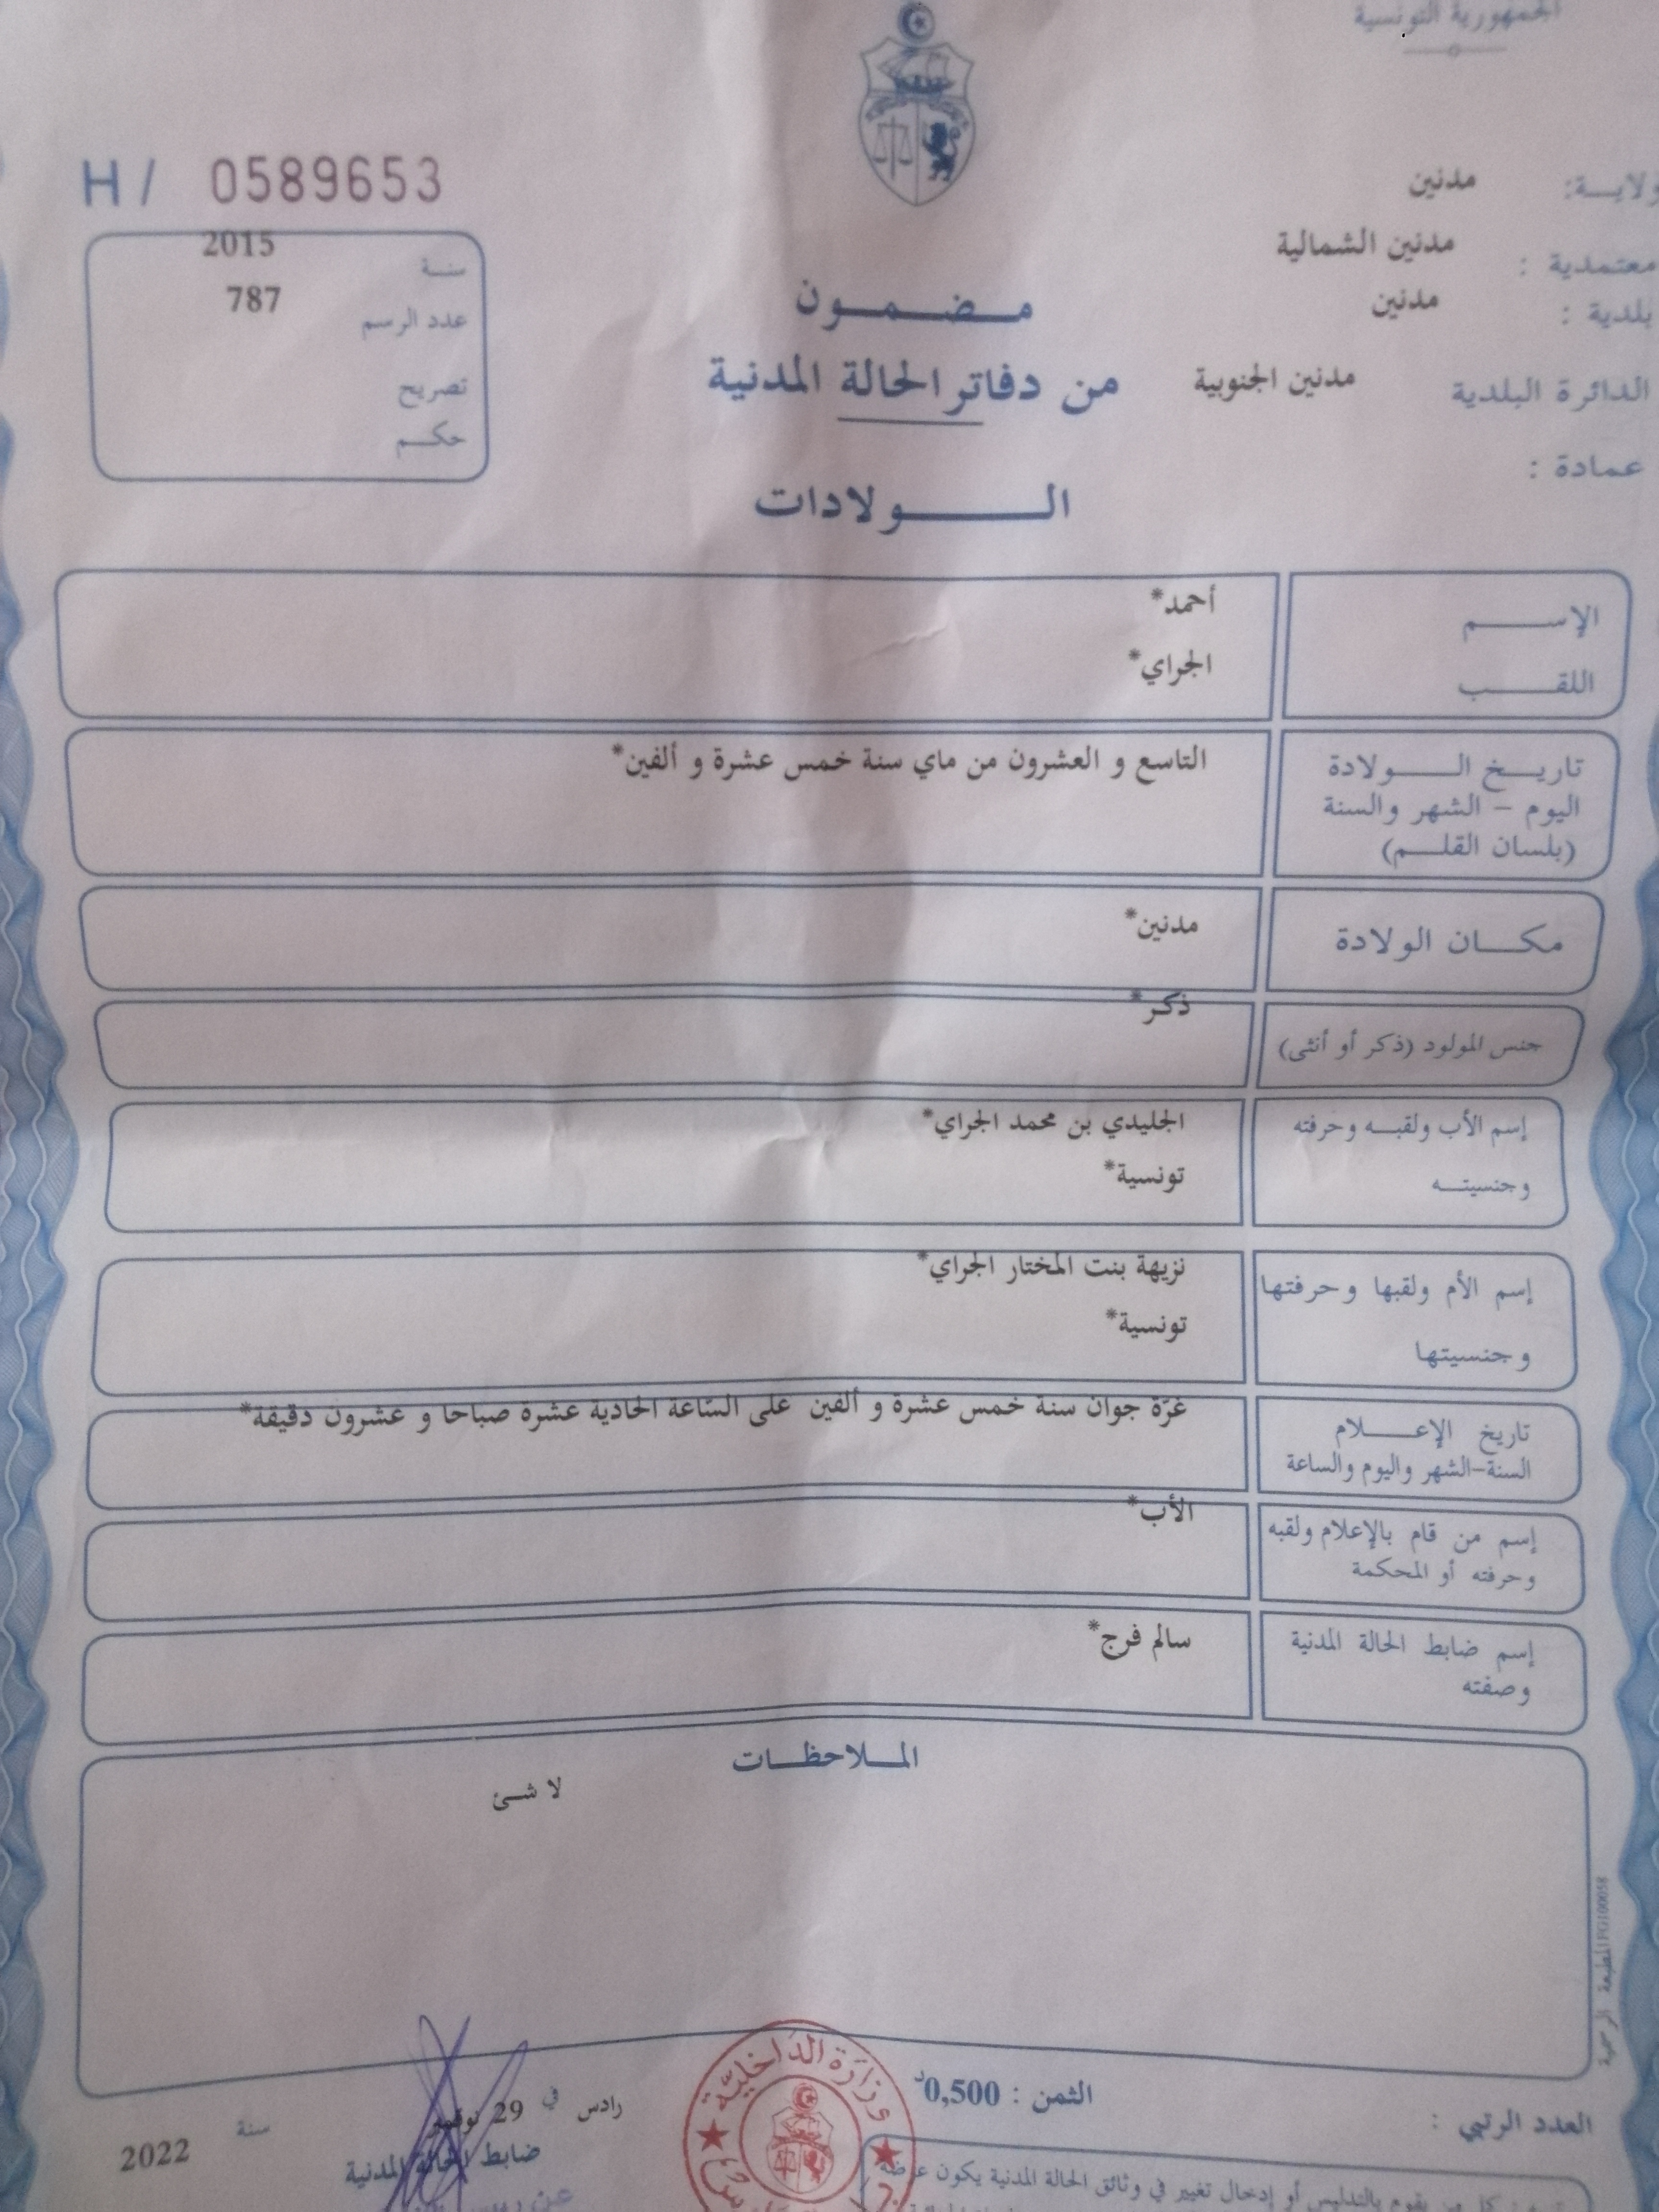 الجمهورية التونسية
H / 0589653
ولايـــة: مدنين
معتمدية : مدنين الشمالية
بلدية : مدنين
الدائرة البلدية مدنين الجنوبية
عمادة :
سنـة 2015
عدد الرسم 787
تصريح
حكـم
مـضـمـون
من دفاتر الحالة المدنية
الـولادات
الإســـم أحمد*
اللقـــب الجراي*
تاريـخ الـــولادة التاسع و العشرون من ماي سنة خمس عشرة و ألفين*
اليوم – الشهر والسنة
(بلسان القلـم)
مكـــان الولادة مدنين*
جنس المولود (ذكر أو أنثى) ذكر*
إسم الأب ولقبـه وحرفته الجليدي بن محمد الجراي*
وجنسيتـه تونسية*
إسم الأم ولقبها وحرفتها نزيهة بنت المختار الجراي*
وجنسيتها تونسية*
تاريخ الإعـــلام غرّة جوان سنة خمس عشرة و ألفين على السّاعة الحادية عشرة صباحا و عشرون دقيقة*
السنة–الشهر واليوم والساعة
إسم من قام بالإعلام ولقبه الأب*
وحرفته أو المحكمة
إسم ضابط الحالة المدنية سالم فرج*
وصفته
المـلاحظـات
لا شئ
المطبعة الرسمية FG100058
العدد الرتبي :
الثمن : 0,500د
رادس في 29 نوفمبر سنة 2022
ضابط الحالة المدنية
وزارة الداخليّة
يقوم بالتدليس أو إدخال تغيير في وثائق الحالة المدنية يكون عرضة